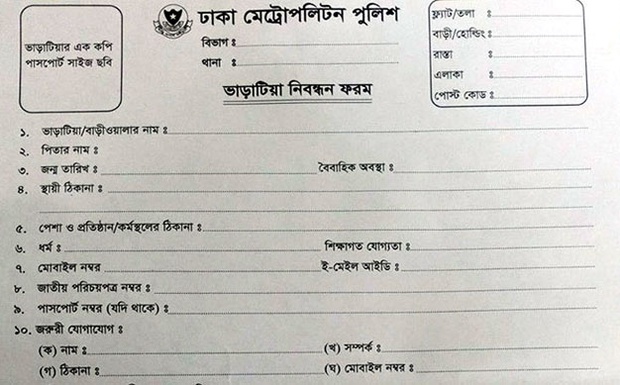 ঢাকা মেট্রোপলিটন পুলিশ
ভাড়াটিয়ার এক কপি
পাসপোর্ট সাইজ ছবি
বিভাগ ঃ
থানা ঃ
ফ্ল্যাট/তলা ঃ
বাড়ী/হোল্ডিং ঃ
রাস্তা ঃ
এলাকা ঃ
পোস্ট কোড ঃ
ভাড়াটিয়া নিবন্ধন ফরম
১. ভাড়াটিয়া/বাড়ীওয়ালার নাম ঃ
২. পিতার নাম ঃ
৩. জন্ম তারিখ ঃ বৈবাহিক অবস্থা ঃ
৪. স্থায়ী ঠিকানা ঃ
৫. পেশা ও প্রতিষ্ঠান/কর্মস্থলের ঠিকানা ঃ
৬. ধর্ম ঃ শিক্ষাগত যোগ্যতা ঃ
৭. মোবাইল নম্বর ই-মেইল আইডি ঃ
৮. জাতীয় পরিচয়পত্র নম্বর ঃ
৯. পাসপোর্ট নম্বর (যদি থাকে) ঃ
১০. জরুরী যোগাযোগ ঃ
(ক) নাম ঃ (খ) সম্পর্ক ঃ
(গ) ঠিকানা ঃ (ঘ) মোবাইল নম্বর ঃ